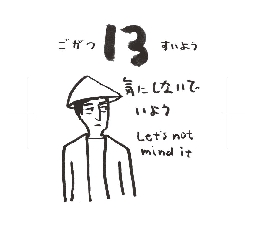 ごがつ 13 すいよう
気にしないで
いよう
Let's not
mind it